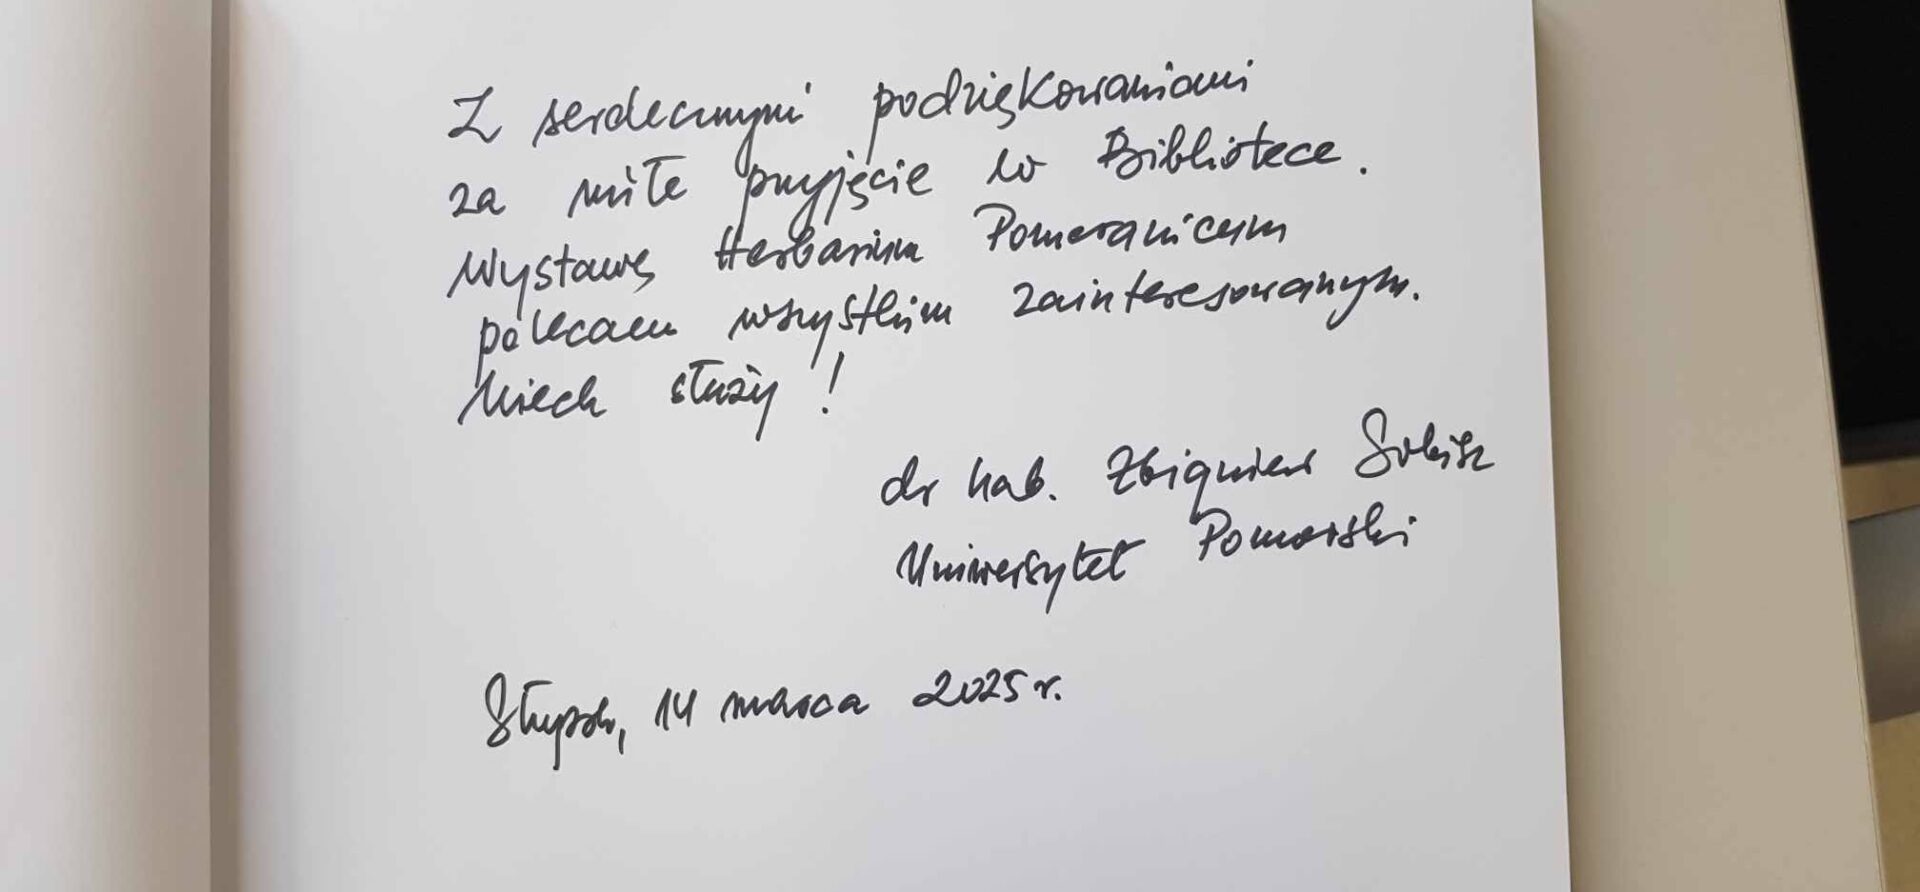 Z serdecznymi podziękowaniami
za miłe przyjęcie w Bibliotece.
Wystawę Herbarium Pomeranicum
polecam wszystkim zainteresowanym.
Niech służy!
dr hab. Zbigniew Sobisz
Uniwersytet Pomorski
Słupsk, 14 marca 2025 r.